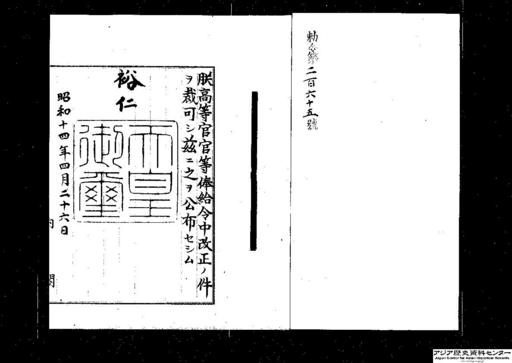 勅令第二百六十五號
朕高等官官等俸給令中改正ノ件
ヲ裁可シ茲ニ之ヲ公布セシム
裕仁
天皇
御璽
昭和十四年四月二十六日
内閣
アジア歴史資料センター
Japan Center for Asian Historical Records